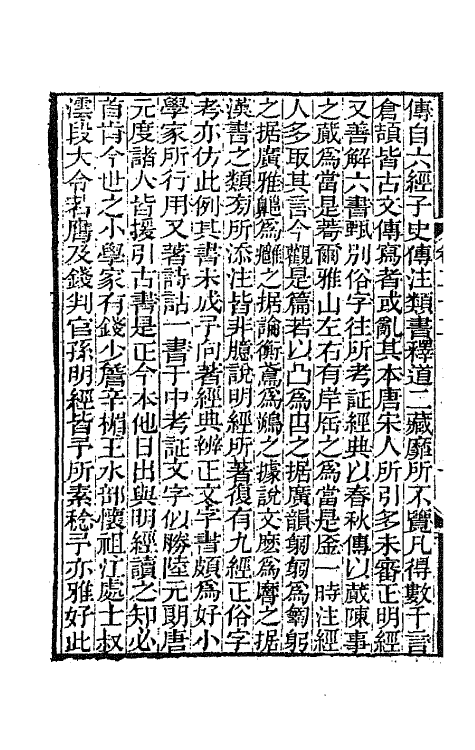 傳自六經子史傳注類書釋道二藏靡所不覽凡得數千言
倉頡皆古文傳寫者或亂其本唐宋人所引多未審正明經
又善解六書甄別俗字往所考証經典以春秋傳以蕆陳事
之蕆為當是蕇爾雅山左右有岸㕎之為當是㕎一時注經
人多取其言今觀是篇若以凸為𠙴之据廣韻匑匑為匔躬
之据廣雅為之据論衡為鷄之據說文麽為麿之据
漢書之類旁所添注皆非臆說明經所著復有九經正俗字
考亦仿此例其書未成予向著經典辨正文字書頗為好小
學家所行用又著詩詁一書于中考証文字似勝陸元朗唐
元度諸人皆援引古書是正今本他日出與明經讀之知必
首肯今世之小學家有錢少詹辛楣王水部懷祖江處士叔
澐段大令若膺及錢判官孫明經皆予所素稔予亦雅好此